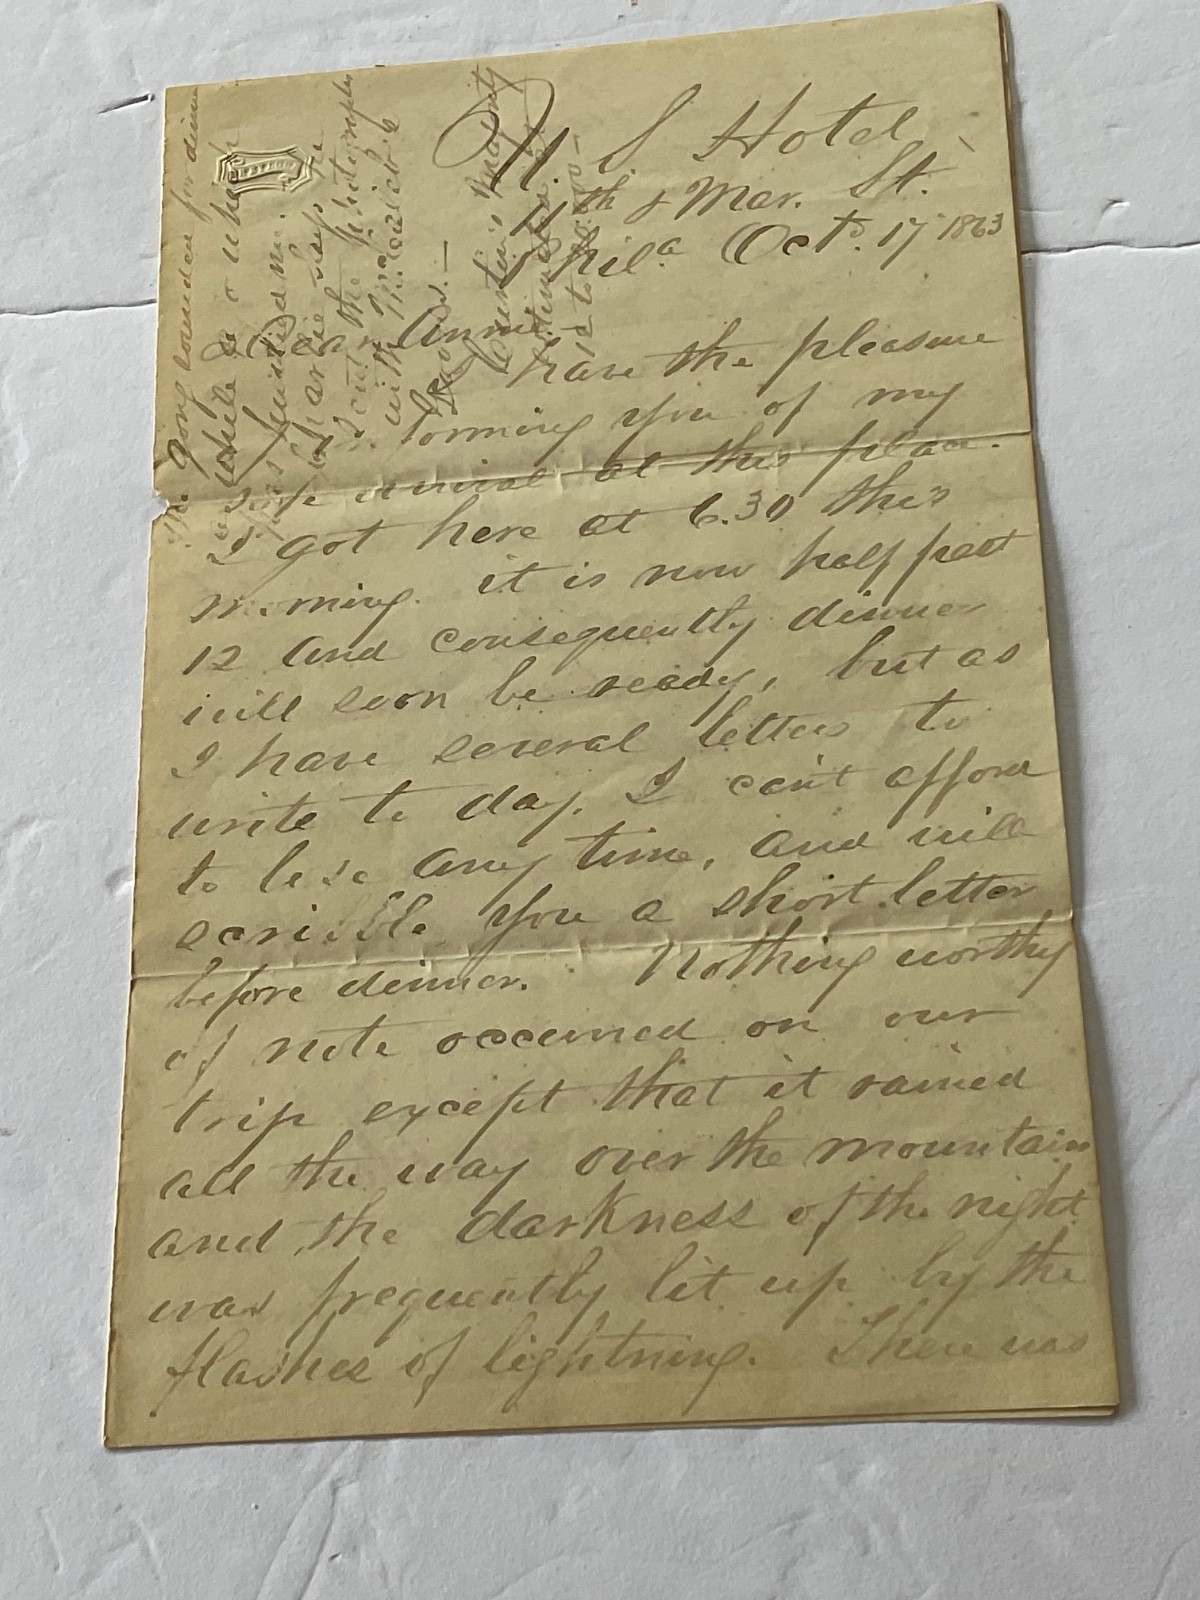 U. S Hotel
11th & Mar. St.
Phila Oct. 17 1863
Dear Annie.
I have the pleasure
informing you of my
safe arrival at this place.
I got here at 6.30 this
morning. it is now half past
12 and consequently dinner
will soon be ready, but as
I have several letters to
write to day. I can't afford
to lose any time, and will
scribble you a short letter
before dinner. Nothing worthy
of note occurred on our
trip except that it rained
all the way over the mountain
and the darkness of the night
was frequently lit up by the
flashes of lightning. There was
The gong sounded for dinner
while
finished
Charlie
the photographs
with
Curtin's Majority
12 to